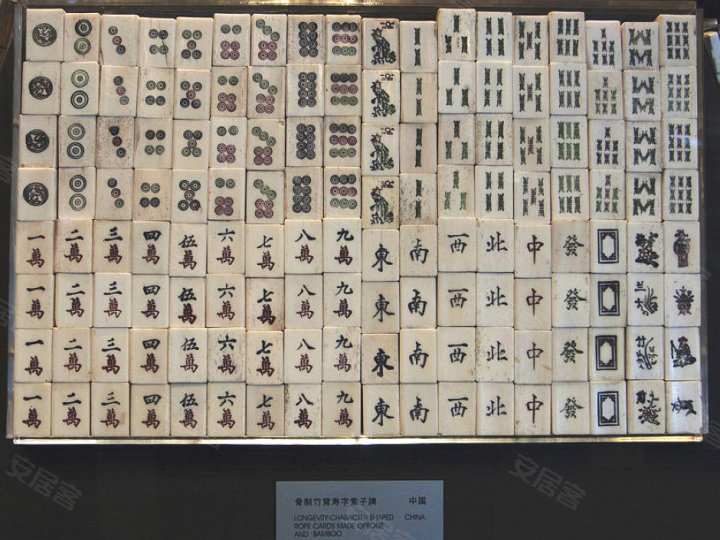 一萬 二萬 三萬 四萬 伍萬 六萬 七萬 八萬 九萬 東 南 西 北 中 發
一萬 二萬 三萬 四萬 伍萬 六萬 七萬 八萬 九萬 東 南 西 北 中 發
一萬 二萬 三萬 四萬 伍萬 六萬 七萬 八萬 九萬 東 南 西 北 中 發
一萬 二萬 三萬 四萬 伍萬 六萬 七萬 八萬 九萬 東 南 西 北 中 發
骨制竹背寿字索子牌 中国
LONGEVITY-CHARACTER SHAPED CHINA
ROPE CARDS MADE OFBONE
AND BAMBOO
安居客
安居客